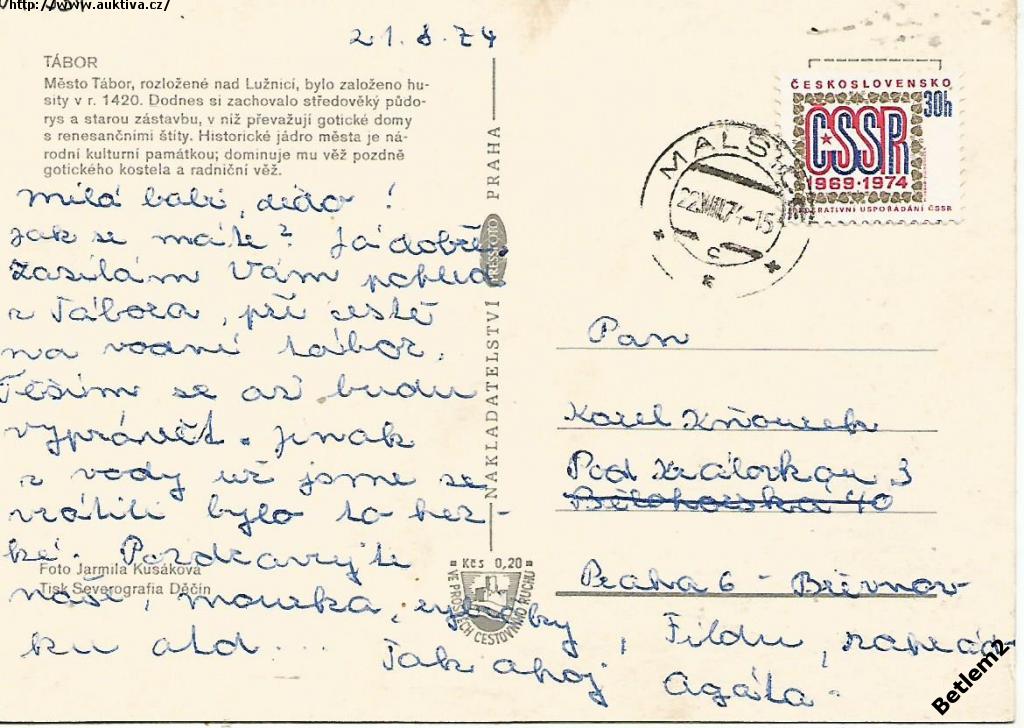 http://www.auktiva.cz/
21.8.74
TÁBOR
Město Tábor, rozložené nad Lužnicí, bylo založeno hu-
sity v r. 1420. Dodnes si zachovalo středověký půdo-
rys a starou zástavbu, v níž převažují gotické domy
s renesančními štíty. Historické jádro města je ná-
rodní kulturní památkou; dominuje mu věž pozdně
gotického kostela a radniční věž.
Milá babi, dědo!
Jak se máte? Já dobře.
Zasílám Vám pohled
z Tábora, při cestě
na vodní tábor.
Těším se až budu
vyprávět. Jinak
z vody už jsme se
vrátili bylo to hez-
ké. Pozdravujte
naše, mourka, rybičky, Fildu, zahrád-
ku atd...
Tak ahoj Agáta.
Foto Jarmila Kusáková
Tisk Severografia Děčín
NAKLADATELSTVÍ PRESSFOTO PRAHA
Kčs 0,20
VE PROSPĚCH CESTOVNÍHO RUCHU
ČESKOSLOVENSKO
30h
ČSSR
1969·1974
FEDERATIVNÍ USPOŘÁDÁNÍ ČSSR
22.VIII.74-15
c
Pan
Karel
Pod Královkou 3
Bělohorská 40
Praha 6 - Břevnov
Betlem2